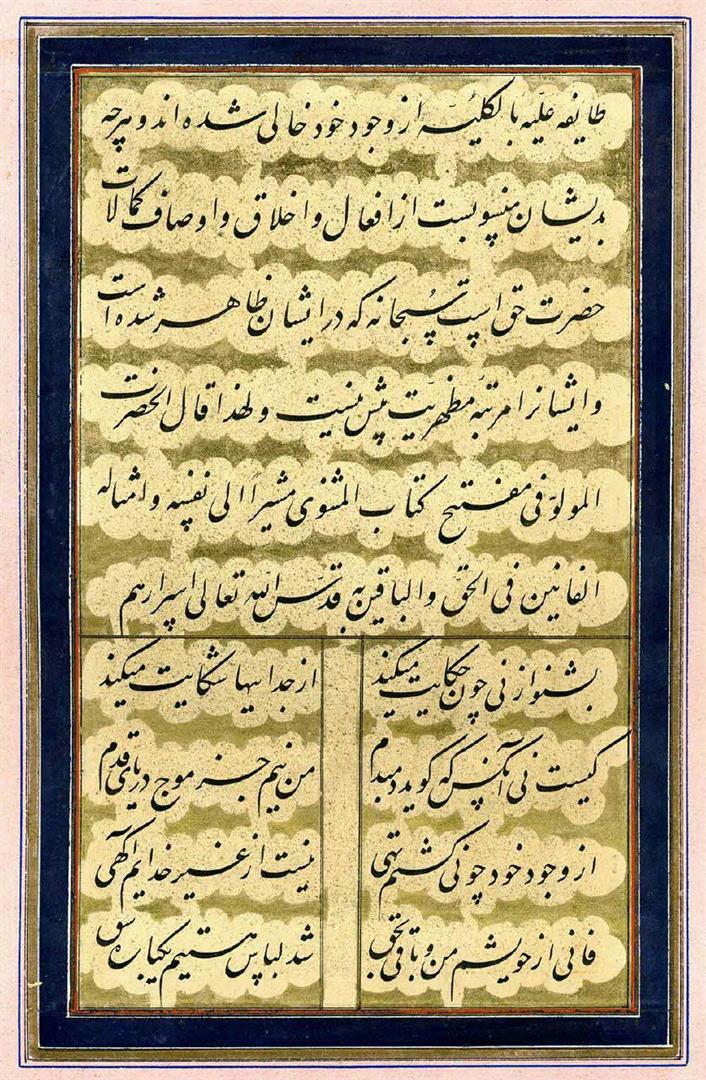 طایفه علیّه بالکلیّه از وجود خود خالی شده‌اند و هرچه
بدیشان منسوبست از افعال و اخلاق و اوصاف کمالات
حضرت حق است سبحانه که در ایشان ظاهر شده است
و ایشانرا مرتبهٔ مظهریت بیش نیست و لهذا قال الحضرت
المولوّ فی مفتتح کتاب المثنوی مشیراً الی نفسه و امثاله
الفانین فی الحقّ و الباقین به قدّس الله تعالی اسرارهم
بشنو از نی چون حکایت میکند از جداییها شکایت میکند
کیست نی آنکس که کوید دمبدم من نیم جز موج دریای قدم
از وجود خود چو نی کشتم تهی نیست از غیر خدایم آکهی
فانی از خویشم من و باقی بحق شد لباس هستیم یکباره شق